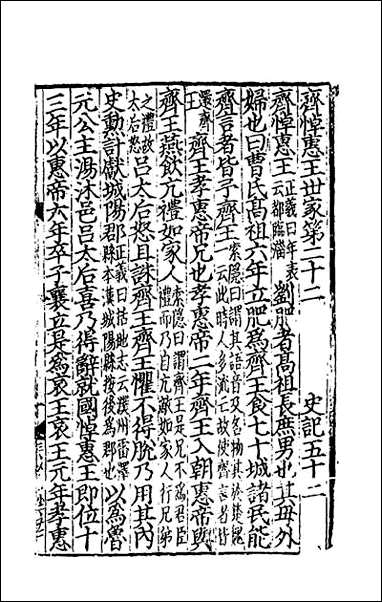 齊悼惠王世家第二十二　史記五十二
齊悼惠王正義曰年表云都臨淄劉肥者高祖長庶男也其母外
婦也曰曹氏高祖六年立肥爲齊王食七十城諸民能
齊言者皆予齊王索隱曰謂其語音及名物異於楚魏一云此時人多流亡故使齊言者皆
還齊王齊王孝惠帝兄也孝惠帝二年齊王入朝惠帝與
齊王燕飲亢禮如家人索隱曰謂齊王是兄不爲君臣禮而乃自亢敵如家人行兄弟
之禮故太后怒呂太后怒且誅齊王齊王懼不得脫乃用其內
史勳計獻城陽郡正義曰括地志云濮州雷澤縣本漢城陽縣按後爲郡也以爲魯
元公主湯沐邑呂太后喜乃得辭就國悼惠王即位十
三年以惠帝六年卒子襄立是爲哀王哀王元年孝惠